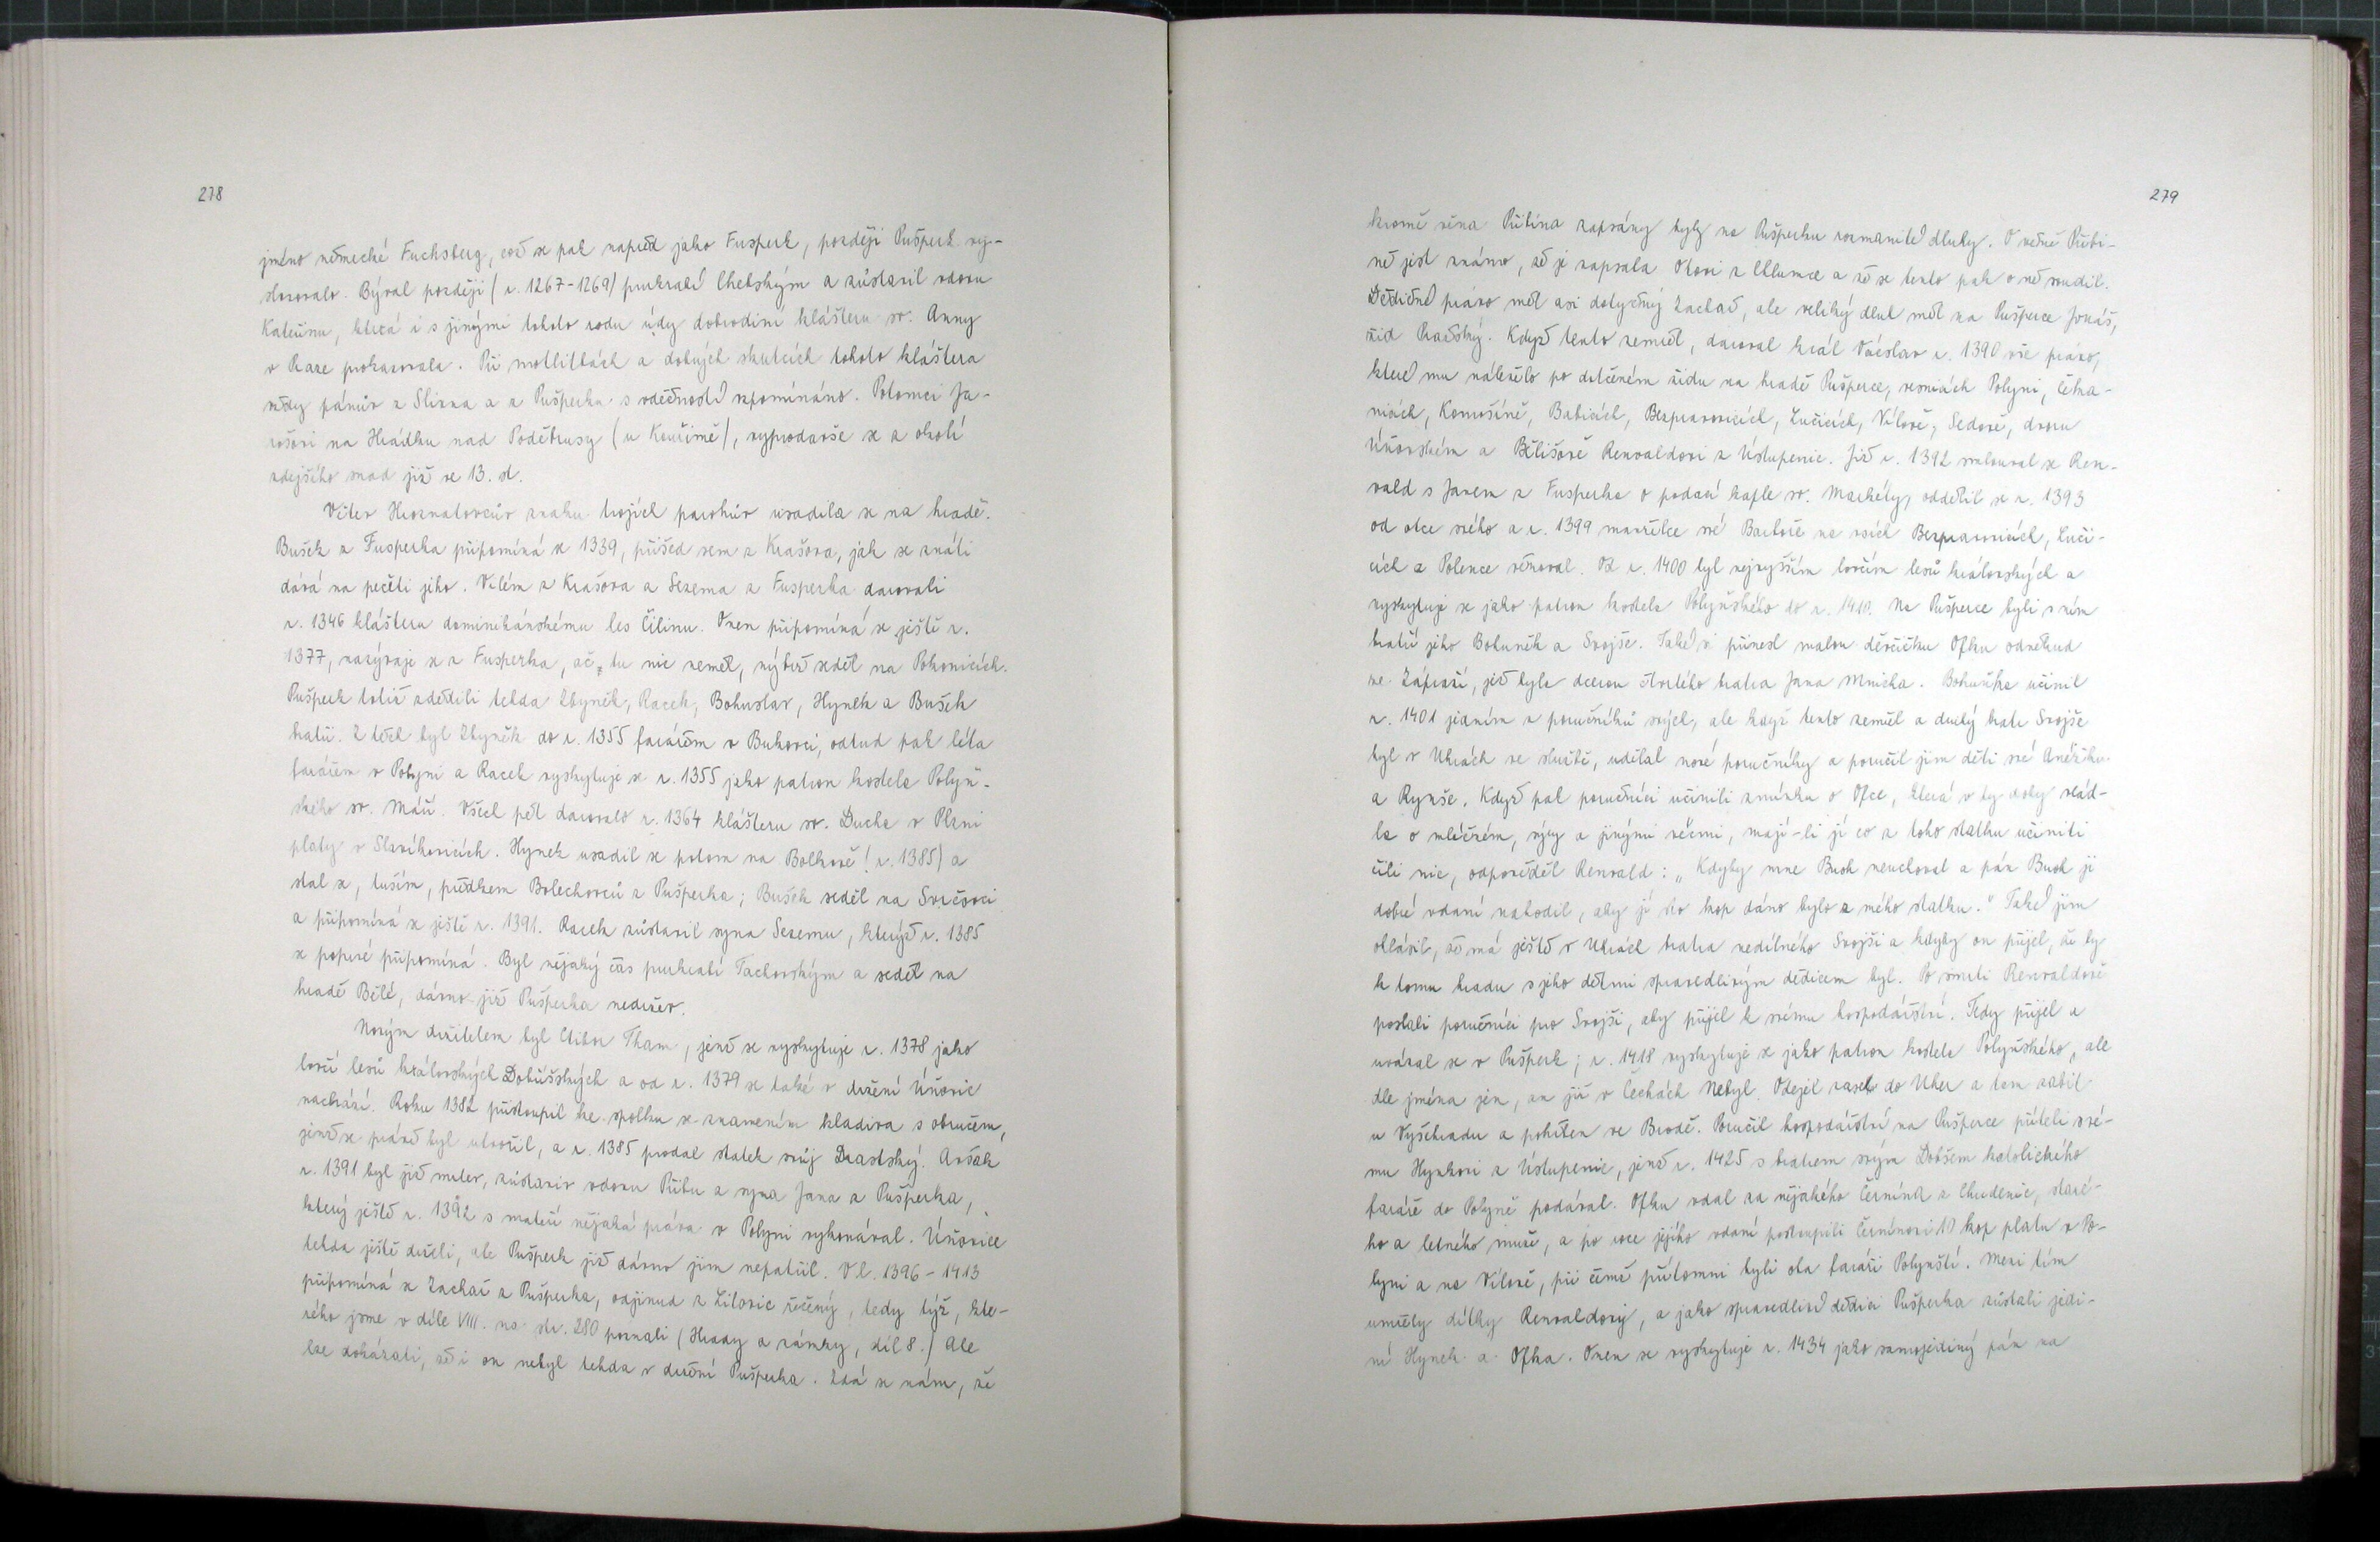 278
jméno německé Fuchsberg, což se pak napřed jako Fusperk, později Pušperk vy-
slovovalo. Býval později (r. 1267-1269) purkrabí Chebským a zůstavil vdovu
Kateřinu, která i s jinými tohoto rodu údy dobrodiní klášteru sv. Anny
v Praze prokazovala. Při motlitbách a dobrých skutcích tohoto kláštera
vždy pánův z Slivna a z Pušperka s vděčností vzpomínáno. Potomci Ja-
rošovi na Hrádku nad Poděbrusy (u Kouřimě), vyprodavše se z okolí
zdejšího snad již ve 13. st.
Větev Hroznatovcův znaku trojích parohův usadila se na hradě.
Bušek z Fusperka připomíná se 1339, přišed sem z Krašova, jak se znáti
dává na pečeti jeho. Vilém z Krašova a Sezema z Fusperka darovali
r. 1346 klášteru dominikánskému les Čilinu. Onen připomíná se ještě r.
1377, nazývaje se z Fusperka, ač tu nic neměl, nýbrž seděl na Pokonicích.
Pušperk totiž zdědili tehda Zbyněk, Racek, Bohuslav, Hynek a Bušek
bratří. Z těch byl Zbyněk do r. 1355 farářem v Bukovci, odtud pak léta
farářem v Polyni a Racek vyskytuje se r. 1355 jako patron kostela Polyň-
ského sv. Máří. Všech pět darovalo r. 1364 klášteru sv. Ducha v Plzni
platy v Slavíkovicích. Hynek usadil se potom na Bolkově (r. 1385) a
stal se, tuším, předkem Bolechovců z Pušperka; Bušek seděl na Svrčovci
a připomíná se ještě r. 1391. Racek zůstavil syna Sezemu, kterýž r. 1385
se poprvé připomíná. Byl nějaký čas purkrabí Tachovským a seděl na
hradě Bělé, dávno již Pušperka nedržev.
Novým držitelem byl Ctibor Tham, jenž se vyskytuje r. 1378 jako
lovčí lesů královských Dobříšských a od r. 1379 se také v držení Úňovic
nachází. Roku 1382 přistoupil ke spolku se znamením kladiva s obručem,
jenž se právě byl utvořil, a r. 1385 prodal statek svůj Drastský. Avšak
r. 1391 byl již mrtev, zůstaviv vdovu Přibu a syna Jana z Pušperka,
který ještě r. 1392 s mateří nějaká práva v Polyni vykonával. Úňovice
tehda ještě drželi, ale Pušperk již dávno jim nepatřil. V l. 1396-1413
připomíná se Zachař z Pušperka, odjinud z Litovic řečený, tedy týž, kte-
rého jsme v díle VIII. na str. 280 poznali (Hrady a zámky, díl 8.) Ale
lze dokázati, že i on nebyl tehda v držení Pušperka. Zdá se nám, že
279
kromě věna Přibina zapsány byly na Pušperku rozmanité dluhy. O věně Přibi-
ně jest známo, že je zapsala Otovi z Chlumce a že se tento pak o ně soudil.
Dědičné právo měl asi dotyčný Zachař, ale veliký dluh měl na Pušperce Jonáš,
žid Pražský. Když tento zemřel, daroval král Václav r. 1390 vše právo,
které mu náleželo po dotčeném židu na hradě Pušperce, vesnicích Polyni, Četna-
nicích, Komošíně, Babicích, Bezpravovicích, Lučicích, Vítově, Sedově, dvoru
Úňovském a Bělišově Renvaldovi z Ústupenic. Již r. 1392 smlouval se Ren-
vald s Janem z Fusperka o podací kaple sv. Markéty, oddělil se r. 1393
od otce svého a r. 1399 manželce své Barboře na vsích Bezpravovicích, Luči-
cích a Polence věnoval. Od r. 1400 byl nejvyšším lovčím lesů královských a
vyskytuje se jako patron kostela Polyňského do r. 1410. Na Pušperce byli s ním
bratří jeho Bohuněk a Svojše. Také si přinesl malou děvčičku Ofku odněkud
ze Zápraží, jež byla dcerou čtvrtého bratra Jana Mnicha. Bohuňka učinil
r. 1401 jedním z poručníků svých, ale když tento zemřel a druhý bratr Svojše
byl v Uhrách ve službě, udělal nové poručníky a poručil jim děti své Anéžku
a Rynše. Když pak poručníci učinili zmínku o Ofce, která v ty doby vlád-
la o mléčném, sýry a jinými věcmi, mají-li jí co z toho statku učiniti
čili nic, odpověděl Renvald: „Kdyby mne Buoh neuchoval a pán Buoh jí
dobré vdaní nahodil, aby jí sto kop dáno bylo z mého statku." Také jim
ohlásil, že má ještě v Uhrách bratra nedílného Svojši a kdyby on přijel, že by
k tomu hradu s jeho dětmi spravedlivým dědicem byl. Po smrti Renvaldově
poslali poručníci pro Svojši, aby přijel k svému hospodářství. Tedy přijel a
uvázal se v Pušperk; r. 1418 vyskytuje se jako patron kostela Polyňského, ale
dle jména jen, an již v Čechách nebyl. Odejel zase do Uher a tam zabit
u Vyšehradu a pohřben ve Brodě. Poručil hospodářství na Pušperce příteli své-
mu Hynkovi z Ústupenic, jenž r. 1425 s bratrem svým Dobšem katolického
faráře do Polyně podával. Ofku vdal za nějakého Černína z Chudenic, staré-
ho a letného muže, a po roce jejího vdaní postoupili Černínovi 10 kop platu v Po-
lyni a na Vítově, při čemž přítomni byli oba faráři Polyňští. Mezi tím
umřely dítky Renvaldovy, a jako spravedliví dědici Pušperka zůstali jedi-
ní Hynek a Ofka. Onen se vyskytuje r. 1434 jako samojediný pán na